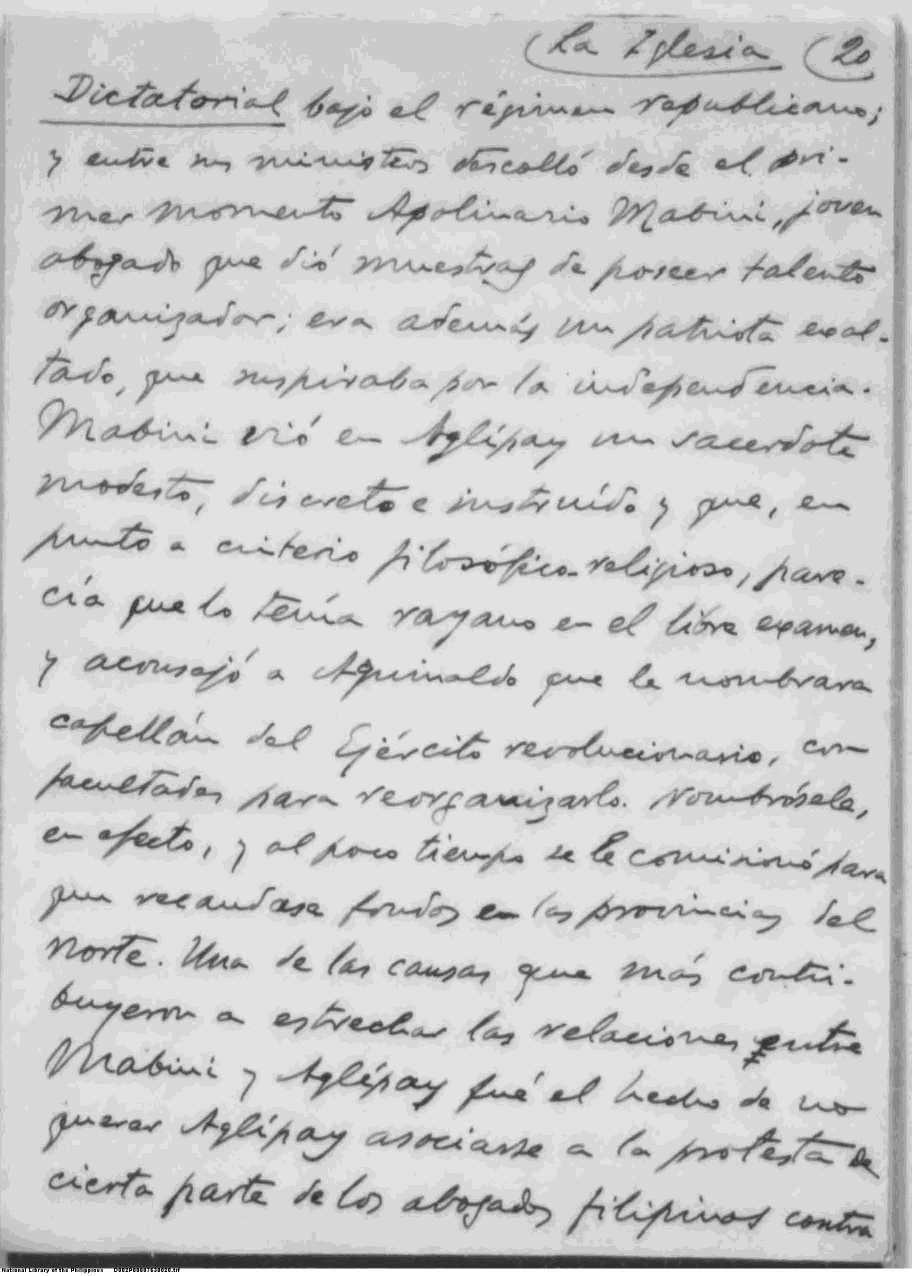 La Iglesia 20
Dictatorial bajo el régimen republicano;
y entre sus ministros descolló desde el pri-
mer momento Apolinario Mabini, joven
abogado que dió muestras de poseer talento
organizador; era además un patriota exal-
tado, que suspiraba por la independencia.
Mabini vió en Aglípay un sacerdote
modesto, discreto e instruído y que, en
punto a criterio filosófico-religioso, pare-
cía que lo tenía rayano en el libre examen,
y aconsejó a Aguinaldo que le nombrara
capellán del Ejército revolucionario, con
facultades para reorganizarlo. Nombrósele,
en efecto, y al poco tiempo se le comisionó para
que recaudase fondos en las provincias del
norte. Una de las causas que más contri-
buyeron a estrechar las relaciones entre
Mabini y Aglípay fué el hecho de no
querer Aglípay asociarse a la protesta de
cierta parte de los abogados filipinos contra
National Library of the Philippines